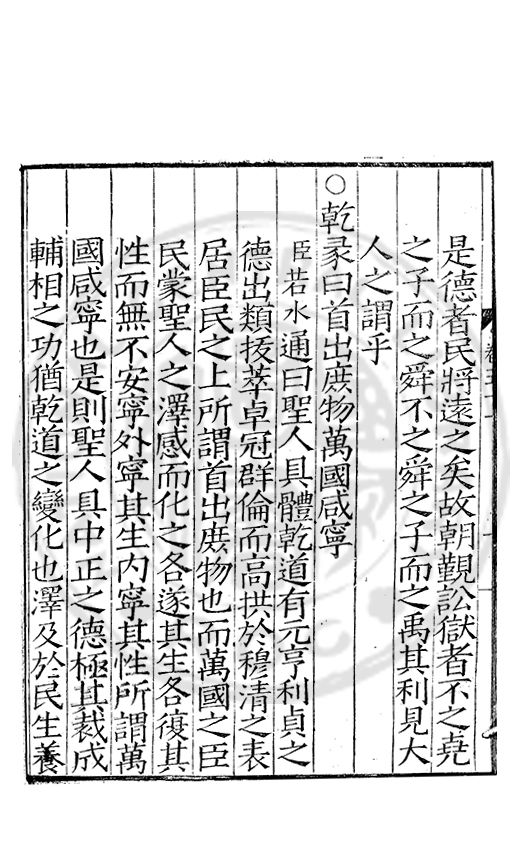 是德者民將遠之矣故朝覲訟獄者不之堯
之子而之舜不之舜之子而之禹其利見大
人之謂乎
○乾彖曰首出庶物萬國咸寧
臣若水通曰聖人具體乾道有元亨利貞之
德出類拔萃卓冠群倫而高拱於穆清之表
居臣民之上所謂首出庶物也而萬國之臣
民蒙聖人之澤感而化之各遂其生各復其
性而無不安寧外寧其生内寧其性所謂萬
國咸寧也是則聖人具中正之德極其裁成
輔相之功猶乾道之變化也澤及於民生養